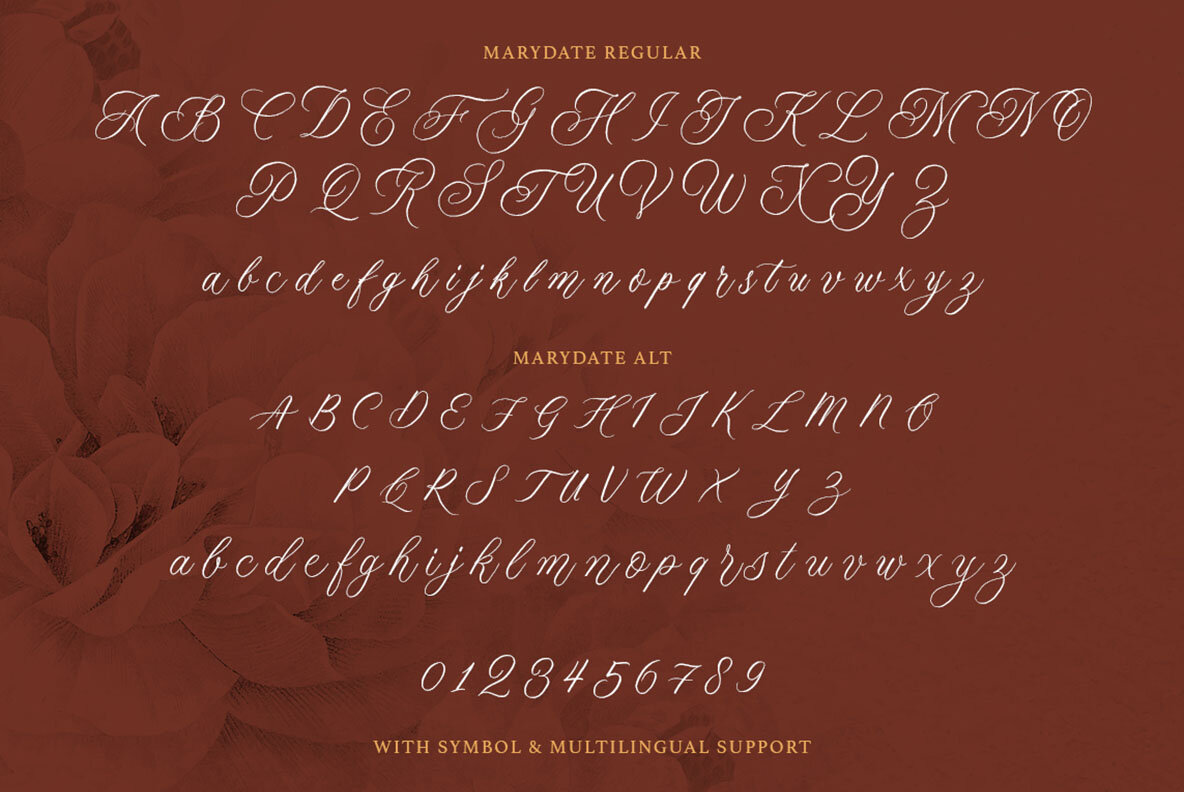 MARYDATE REGULAR
A B C D E F G H I J K L M N O
P Q R S T U V W X Y Z
a b c d e f g h i j k l m n o p q r s t u v w x y z
MARYDATE ALT
A B C D E F G H I J K L M N O
P Q R S T U V W X Y Z
a b c d e f g h i j k l m n o p q r s t u v w x y z
0 1 2 3 4 5 6 7 8 9
WITH SYMBOL & MULTILINGUAL SUPPORT